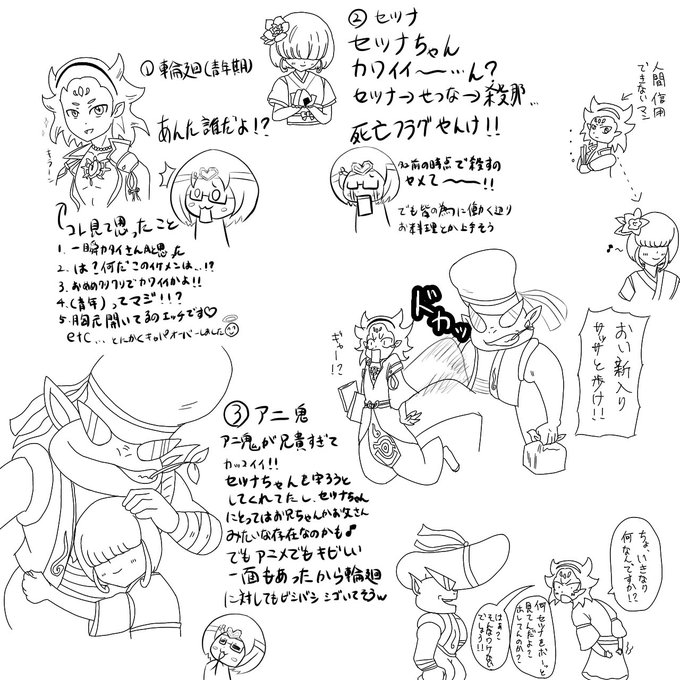 ① 輪廻(青年期)
あんた誰だよ!?
キラーン
コレ見て思ったこと
1. 一瞬カタイさんかと思った
2. は?何だこのイケメンは…!?
3. おめめクリクリでカワイイかよ!!
4. (青年)ってマジ!!?
5. 胸元開いてるのエッチです♡
etc… とにかくキャパオーバーしました
② セツナ
セツナちゃん
カワイイ〜…ん?
セツナ→せつな→殺那…
死亡フラグやんけ!!
名前の時点で殺すの
ヤメて〜〜!!
でも皆の為に働く辺り
お料理とか上手そう
人間信用
できないマン
♪〜
ドカッ
ギャー!?
おい新入り
サッサと歩け!!
③ アニ鬼
アニ鬼が兄貴すぎて
カッコイイ!!
セツナちゃんを守ろうと
してくれてたし、セツナちゃん
にとってはお兄ちゃんかお父さん
みたいな存在なのかも♪
でもアニメでもキビしい
一面もあったから輪廻
に対してもビシバシシゴいてそうw
ちょ、いきなり
何なんですか!?
何セツナをボーッと
見てんだよ?
はぁ?
そんなワケない
でしょう!!